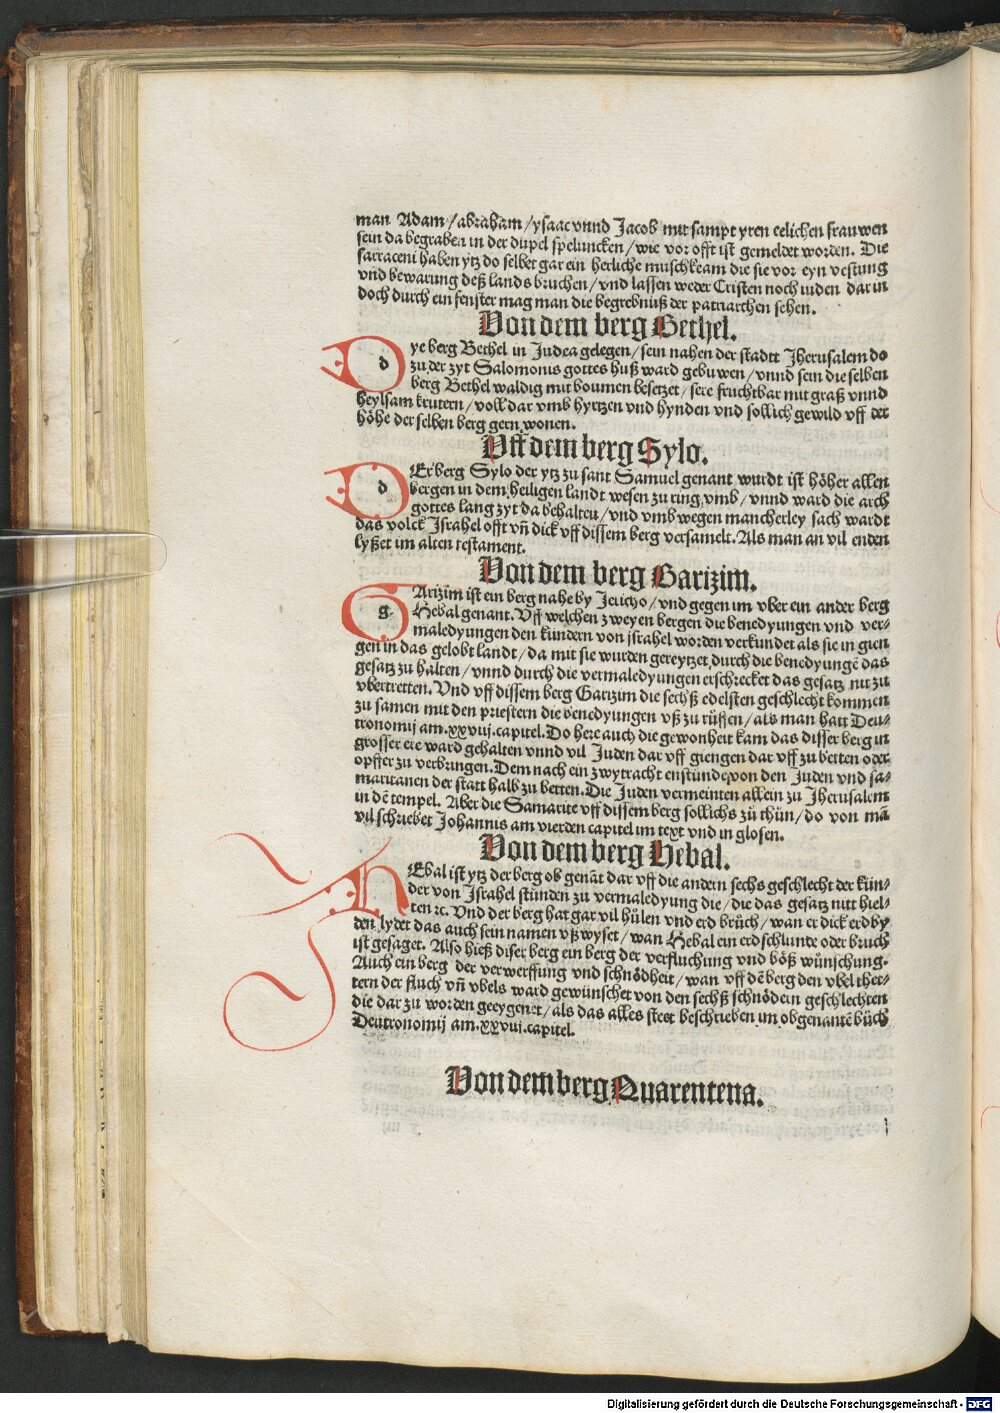 man Adam / abraham / ysaac vnnd Jacob mit sampt yren eelichen frauwen
sein da begraben in der dupel speluncken / wie vor offt ist gemeldet worden. Die
sarraceni haben ytz do selbet gar ein herliche muschkeam die sie vor eyn vestung
vnd bewarung deß lands bruchen / vnd lassen weder Cristen noch iuden dar in
doch durch ein fenster mag man die begrebnuß der patriarchen sehen.
Von dem berg Bethel.
dye berg Bethel in Judea gelegen / sein nahen der stadtt Jherusalem do
zu der zyt Salomonis gottes huß ward gebuwen / vnnd sein die selben
berg Bethel waldig mit boumen besetzet / sere fruchtbar mit graß vnnd
heylsam krutern / voll dar vmb hyrtzen vnd hynden vnd sollich gewild vff der
höhe der selben berg gern wonen.
Vff dem berg Sylo.
dEr berg Sylo der ytz zu sant Samuel genant wurdt ist höher allen
bergen in dem heiligen landt wesen zu ring vmb / vnnd ward die arch
gottes lang zyt da behalten / vnd vmb wegen mancherley sach wardt
das volck Jsrahel offt vñ dick vff dissem berg versamelt. Als man an vil enden
lyßet im alten testament.
Von dem berg Garizim.
gArizim ist ein berg nahe by Jericho / vnd gegen im vber ein ander berg
Hebal genant. Vff welchen zweyen bergen die benedyungen vnd ver⸗
maledyungen den kündern von jsrahel worden verkundet als sie in gien
gen in das gelobt landt / da mit sie wurden gereytzet durch die benedyungẽ das
gesatz zu halten / vnnd durch die vermaledyungen erschrecket das gesatz nit zu
vbertretten. Vnd vff dissem berg Garizim die sechß edelsten geschlecht kommen
zu samen mit den priestern die benedyungen vß zu rüffen / als man hatt Deu⸗
tronomij am .xxvij. capitel. Do here auch die gewonheit kam das disser berg in
grosser ere ward gehalten vnnd vil Juden dar vff giengen dar vff zu betten oder
opffer zu verbringen. Dem nach ein zwytracht enstunde von den Juden vnd sa⸗
maritanen der statt halb zu betten. Die Juden vermeinten allein zu Jherusalem
in dẽ tempel. Aber die Samarite vff dissem berg sollichs zü thün / do von mã
vil schriebet Johannis am vierden capitel im text vnd in glosen.
Von dem berg Hebal.
hEbal ist ytz der berg ob genãt dar vff die andern sechs geschlecht der kün⸗
der von Jsrahel stünden zu vermaledyung die / die das gesatz nitt hiel⸗
ten ꝛc. Vnd der berg hat gar vil hülen vnd erd brüch / wan er dick erdby
den lydet das auch sein namen vß wyset / wan Hebal ein erdschlunde oder bruch
ist gesaget. Also hieß diser berg ein berg der verfluchung vnd böß wünschung.
Auch ein berg der verwerffung vnd schnödheit / wan vff dẽ berg den vbel thet⸗
tern der fluch vñ vbels ward gewünschet von den sechß schnödern geschlechten
die dar zu worden geeygenet / als das alles stest beschrieben im obgenantẽ büch
Deutronomij am .xxvij. capitel.
Von dem berg Quarentena.
Digitalisierung gefördert durch die Deutsche Forschungsgemeinschaft - DFG